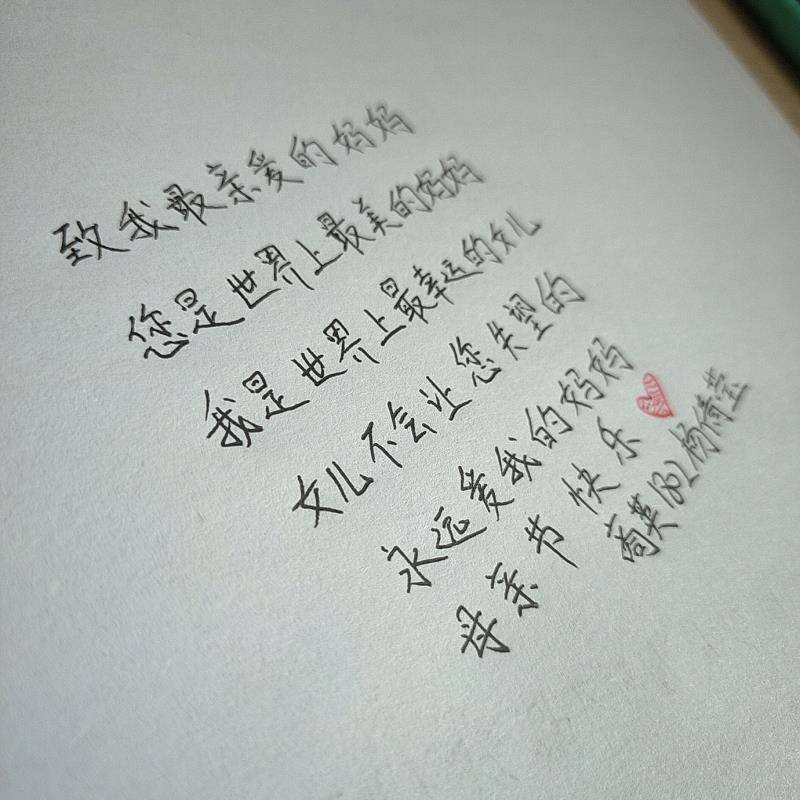 致我最亲爱的妈妈
您是世界上最美的妈妈
我是世界上最幸运的女儿
女儿不会让您失望的
永远爱我的妈妈
母亲节快乐
商英1802杨倩莹